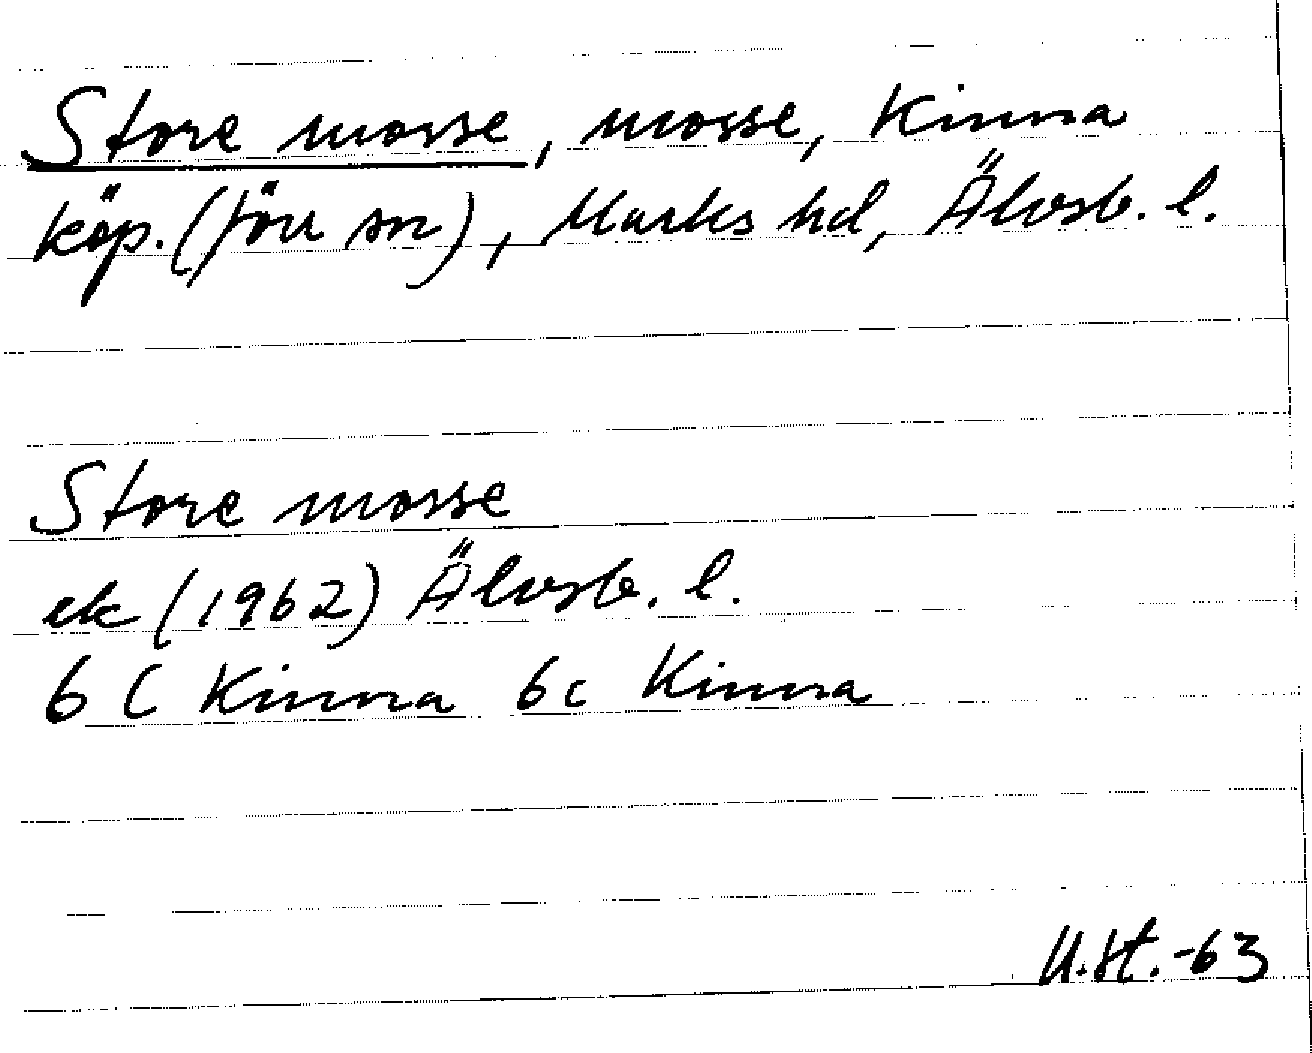 Store mosse, mosse, Kinna
köp. (förr sn), Marks hd, Älvsb. l.
Store mosse
ek (1962) Älvsb. l.
6 C Kinna 6c Kinna
U.H. -63